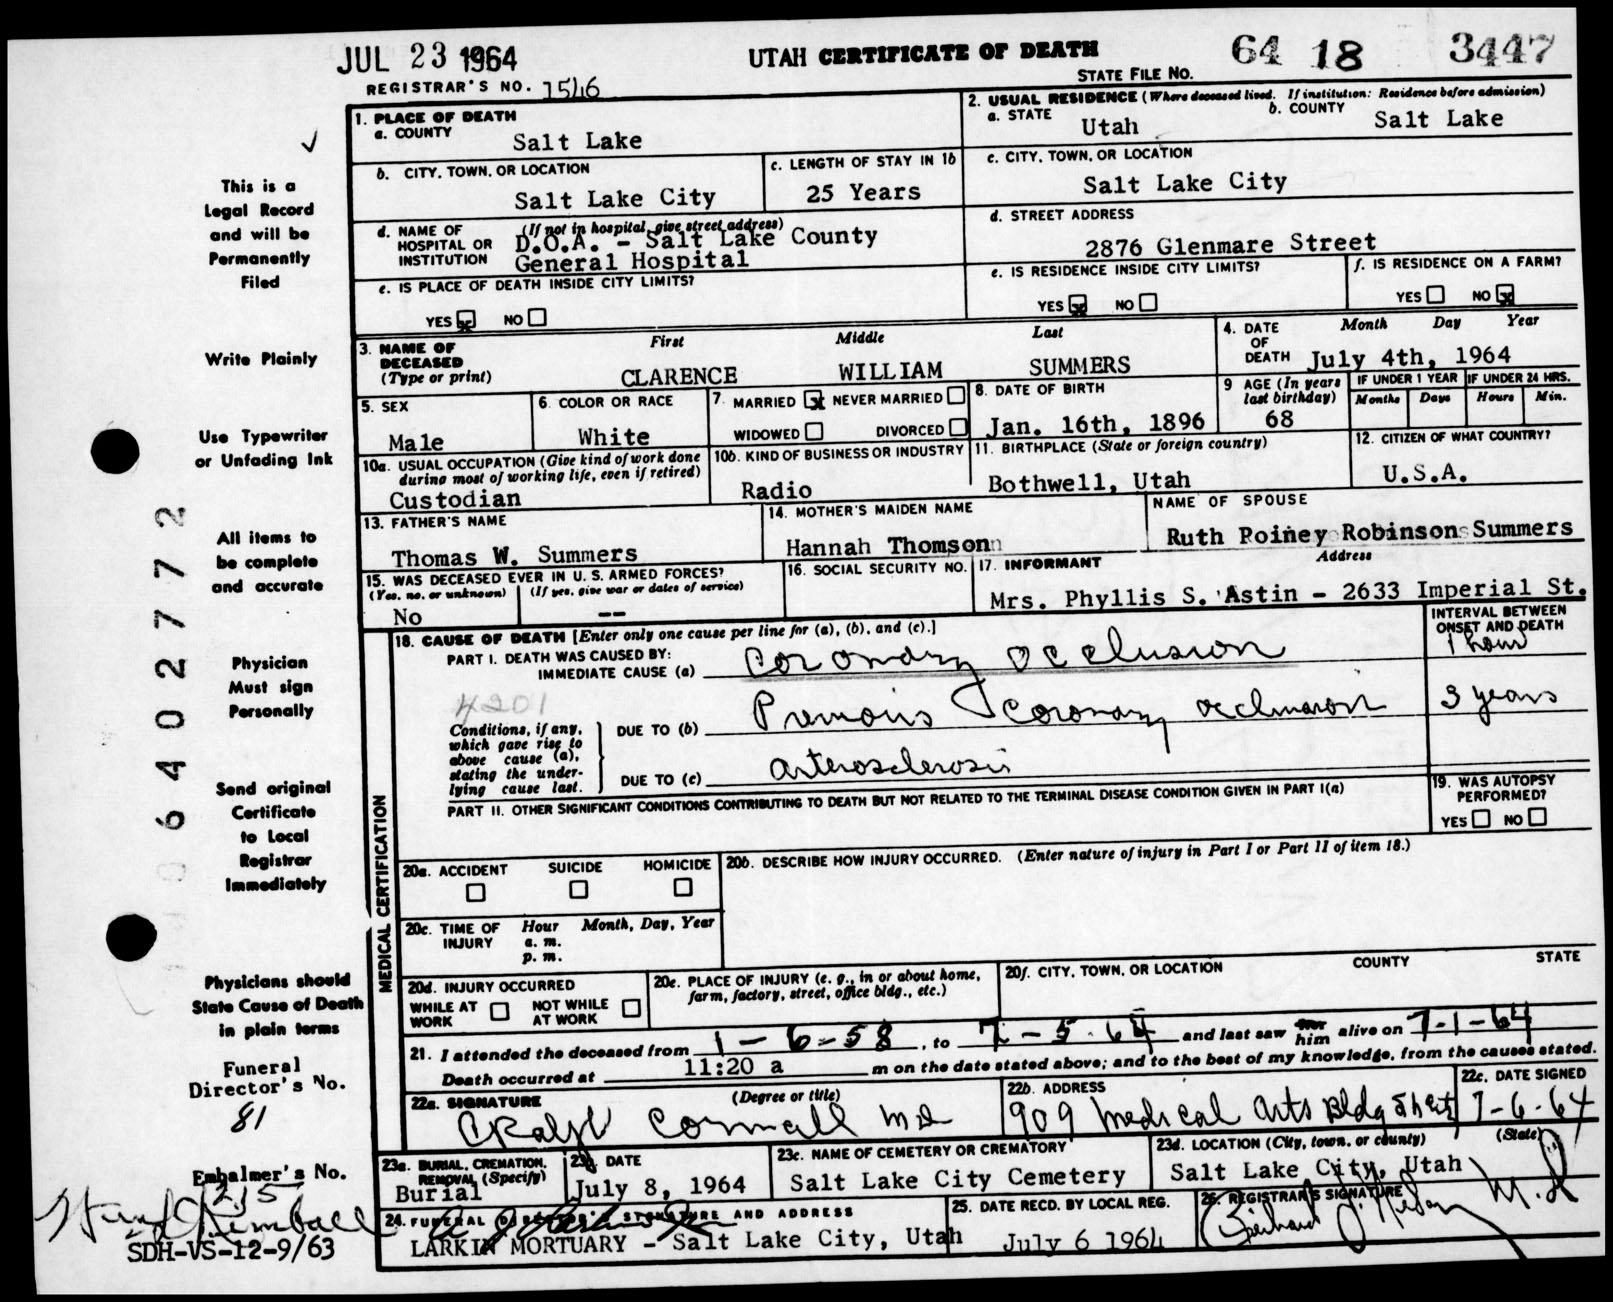 JUL 23 1964
UTAH CERTIFICATE OF DEATH
64 18 3447
STATE FILE NO.
REGISTRAR'S NO. 1546
1. PLACE OF DEATH
a. COUNTY
Salt Lake
2. USUAL RESIDENCE (Where deceased lived. If institution: Residence before admission)
a. STATE
Utah
b. COUNTY
Salt Lake
b. CITY, TOWN, OR LOCATION
Salt Lake City
c. LENGTH OF STAY IN 1b
25 Years
c. CITY, TOWN, OR LOCATION
Salt Lake City
d. NAME OF HOSPITAL OR INSTITUTION
(If not in hospital, give street address)
D.O.A. - Salt Lake County
General Hospital
d. STREET ADDRESS
2876 Glenmare Street
e. IS PLACE OF DEATH INSIDE CITY LIMITS?
YES x NO
e. IS RESIDENCE INSIDE CITY LIMITS?
YES x NO
f. IS RESIDENCE ON A FARM?
YES NO x
3. NAME OF DECEASED (Type or print)
First Middle Last
CLARENCE WILLIAM SUMMERS
4. DATE OF DEATH
Month Day Year
July 4th, 1964
5. SEX
Male
6. COLOR OR RACE
White
7. MARRIED x NEVER MARRIED
WIDOWED DIVORCED
8. DATE OF BIRTH
Jan. 16th, 1896
9 AGE (In years last birthday)
68
IF UNDER 1 YEAR
Months Days
IF UNDER 24 HRS.
Hours Min.
10a. USUAL OCCUPATION (Give kind of work done during most of working life, even if retired)
Custodian
10b. KIND OF BUSINESS OR INDUSTRY
Radio
11. BIRTHPLACE (State or foreign country)
Bothwell, Utah
12. CITIZEN OF WHAT COUNTRY?
U.S.A.
13. FATHER'S NAME
Thomas W. Summers
14. MOTHER'S MAIDEN NAME
Hannah Thomson
NAME OF SPOUSE
Ruth Poiney Robinson Summers
15. WAS DECEASED EVER IN U. S. ARMED FORCES?
(Yes, no, or unknown) (If yes, give war or dates of service)
No --
16. SOCIAL SECURITY NO.
17. INFORMANT Address
Mrs. Phyllis S. Astin - 2633 Imperial St.
18. CAUSE OF DEATH [Enter only one cause per line for (a), (b), and (c).]
INTERVAL BETWEEN ONSET AND DEATH
PART I. DEATH WAS CAUSED BY:
IMMEDIATE CAUSE (a) Coronary occlusion 1 hour
4201
Conditions, if any, which gave rise to above cause (a), stating the underlying cause last.
DUE TO (b) Previous coronary occlusion 3 years
DUE TO (c) arterosclerosis
PART II. OTHER SIGNIFICANT CONDITIONS CONTRIBUTING TO DEATH BUT NOT RELATED TO THE TERMINAL DISEASE CONDITION GIVEN IN PART I(a)
19. WAS AUTOPSY PERFORMED?
YES NO
MEDICAL CERTIFICATION
20a. ACCIDENT SUICIDE HOMICIDE
20b. DESCRIBE HOW INJURY OCCURRED. (Enter nature of injury in Part I or Part II of item 18.)
20c. TIME OF INJURY
Hour Month, Day, Year
a. m.
p. m.
20d. INJURY OCCURRED
WHILE AT WORK NOT WHILE AT WORK
20e. PLACE OF INJURY (e. g., in or about home, farm, factory, street, office bldg., etc.)
20f. CITY, TOWN, OR LOCATION COUNTY STATE
21. I attended the deceased from 1-6-58, to 7-5-64 and last saw him alive on 7-1-64
Death occurred at 11:20 a m on the date stated above; and to the best of my knowledge, from the causes stated.
22a. SIGNATURE (Degree or title)
C Ralph Cornwall MD
22b. ADDRESS
909 Medical Arts Bldg
22c. DATE SIGNED
7-6-64
23a. BURIAL, CREMATION, REMOVAL (Specify)
Burial
23b. DATE
July 8, 1964
23c. NAME OF CEMETERY OR CREMATORY
Salt Lake City Cemetery
23d. LOCATION (City, town, or county) (State)
Salt Lake City, Utah
24. FUNERAL DIRECTOR'S SIGNATURE AND ADDRESS
LARKIN MORTUARY - Salt Lake City, Utah
25. DATE RECD. BY LOCAL REG.
July 6 1964
26. REGISTRAR'S SIGNATURE
M.D.
This is a
Legal Record
and will be
Permanently
Filed
Write Plainly
Use Typewriter
or Unfading Ink
All items to
be complete
and accurate
Physician
Must sign
Personally
Send original
Certificate
to Local
Registrar
Immediately
Physicians should
State Cause of Death
in plain terms
Funeral
Director's No.
81
Embalmer's No.
215
SDH-VS-12-9/63
6402772